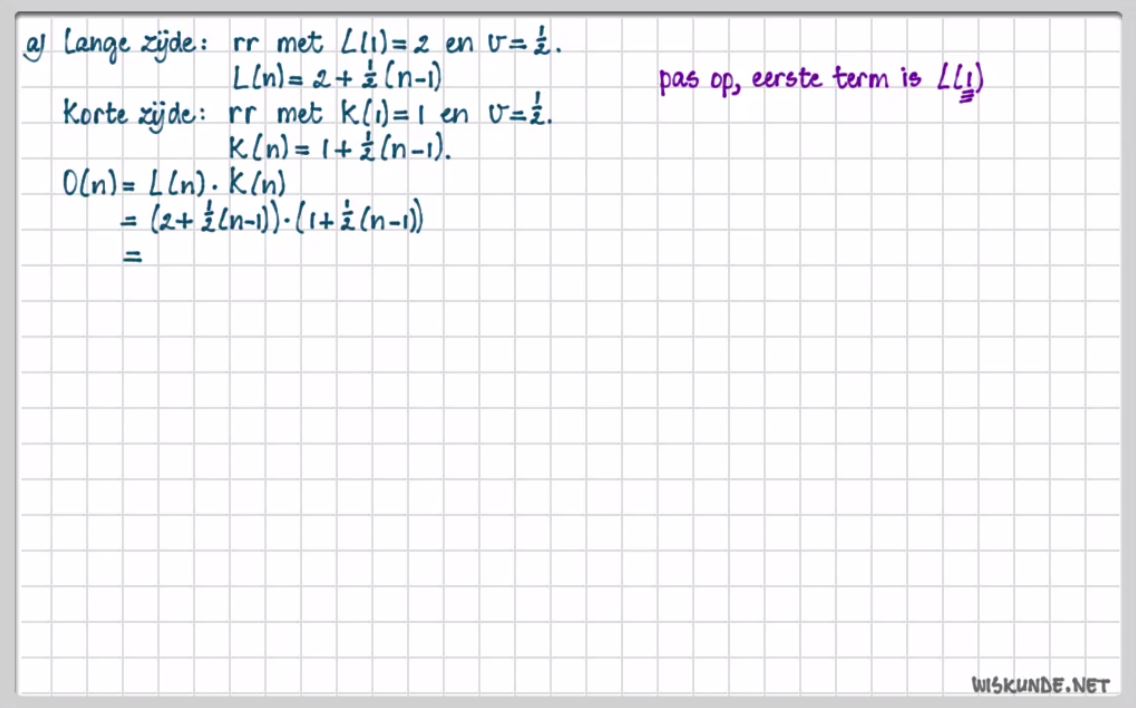 a) Lange zijde: rr met L(1) = 2 en v = ½.
L(n) = 2 + ½(n-1)
pas op, eerste term is L(1)
Korte zijde: rr met K(1) = 1 en v = ½.
K(n) = 1 + ½(n-1).
O(n) = L(n) · K(n)
= (2 + ½(n-1)) · (1 + ½(n-1))
=
WISKUNDE.NET